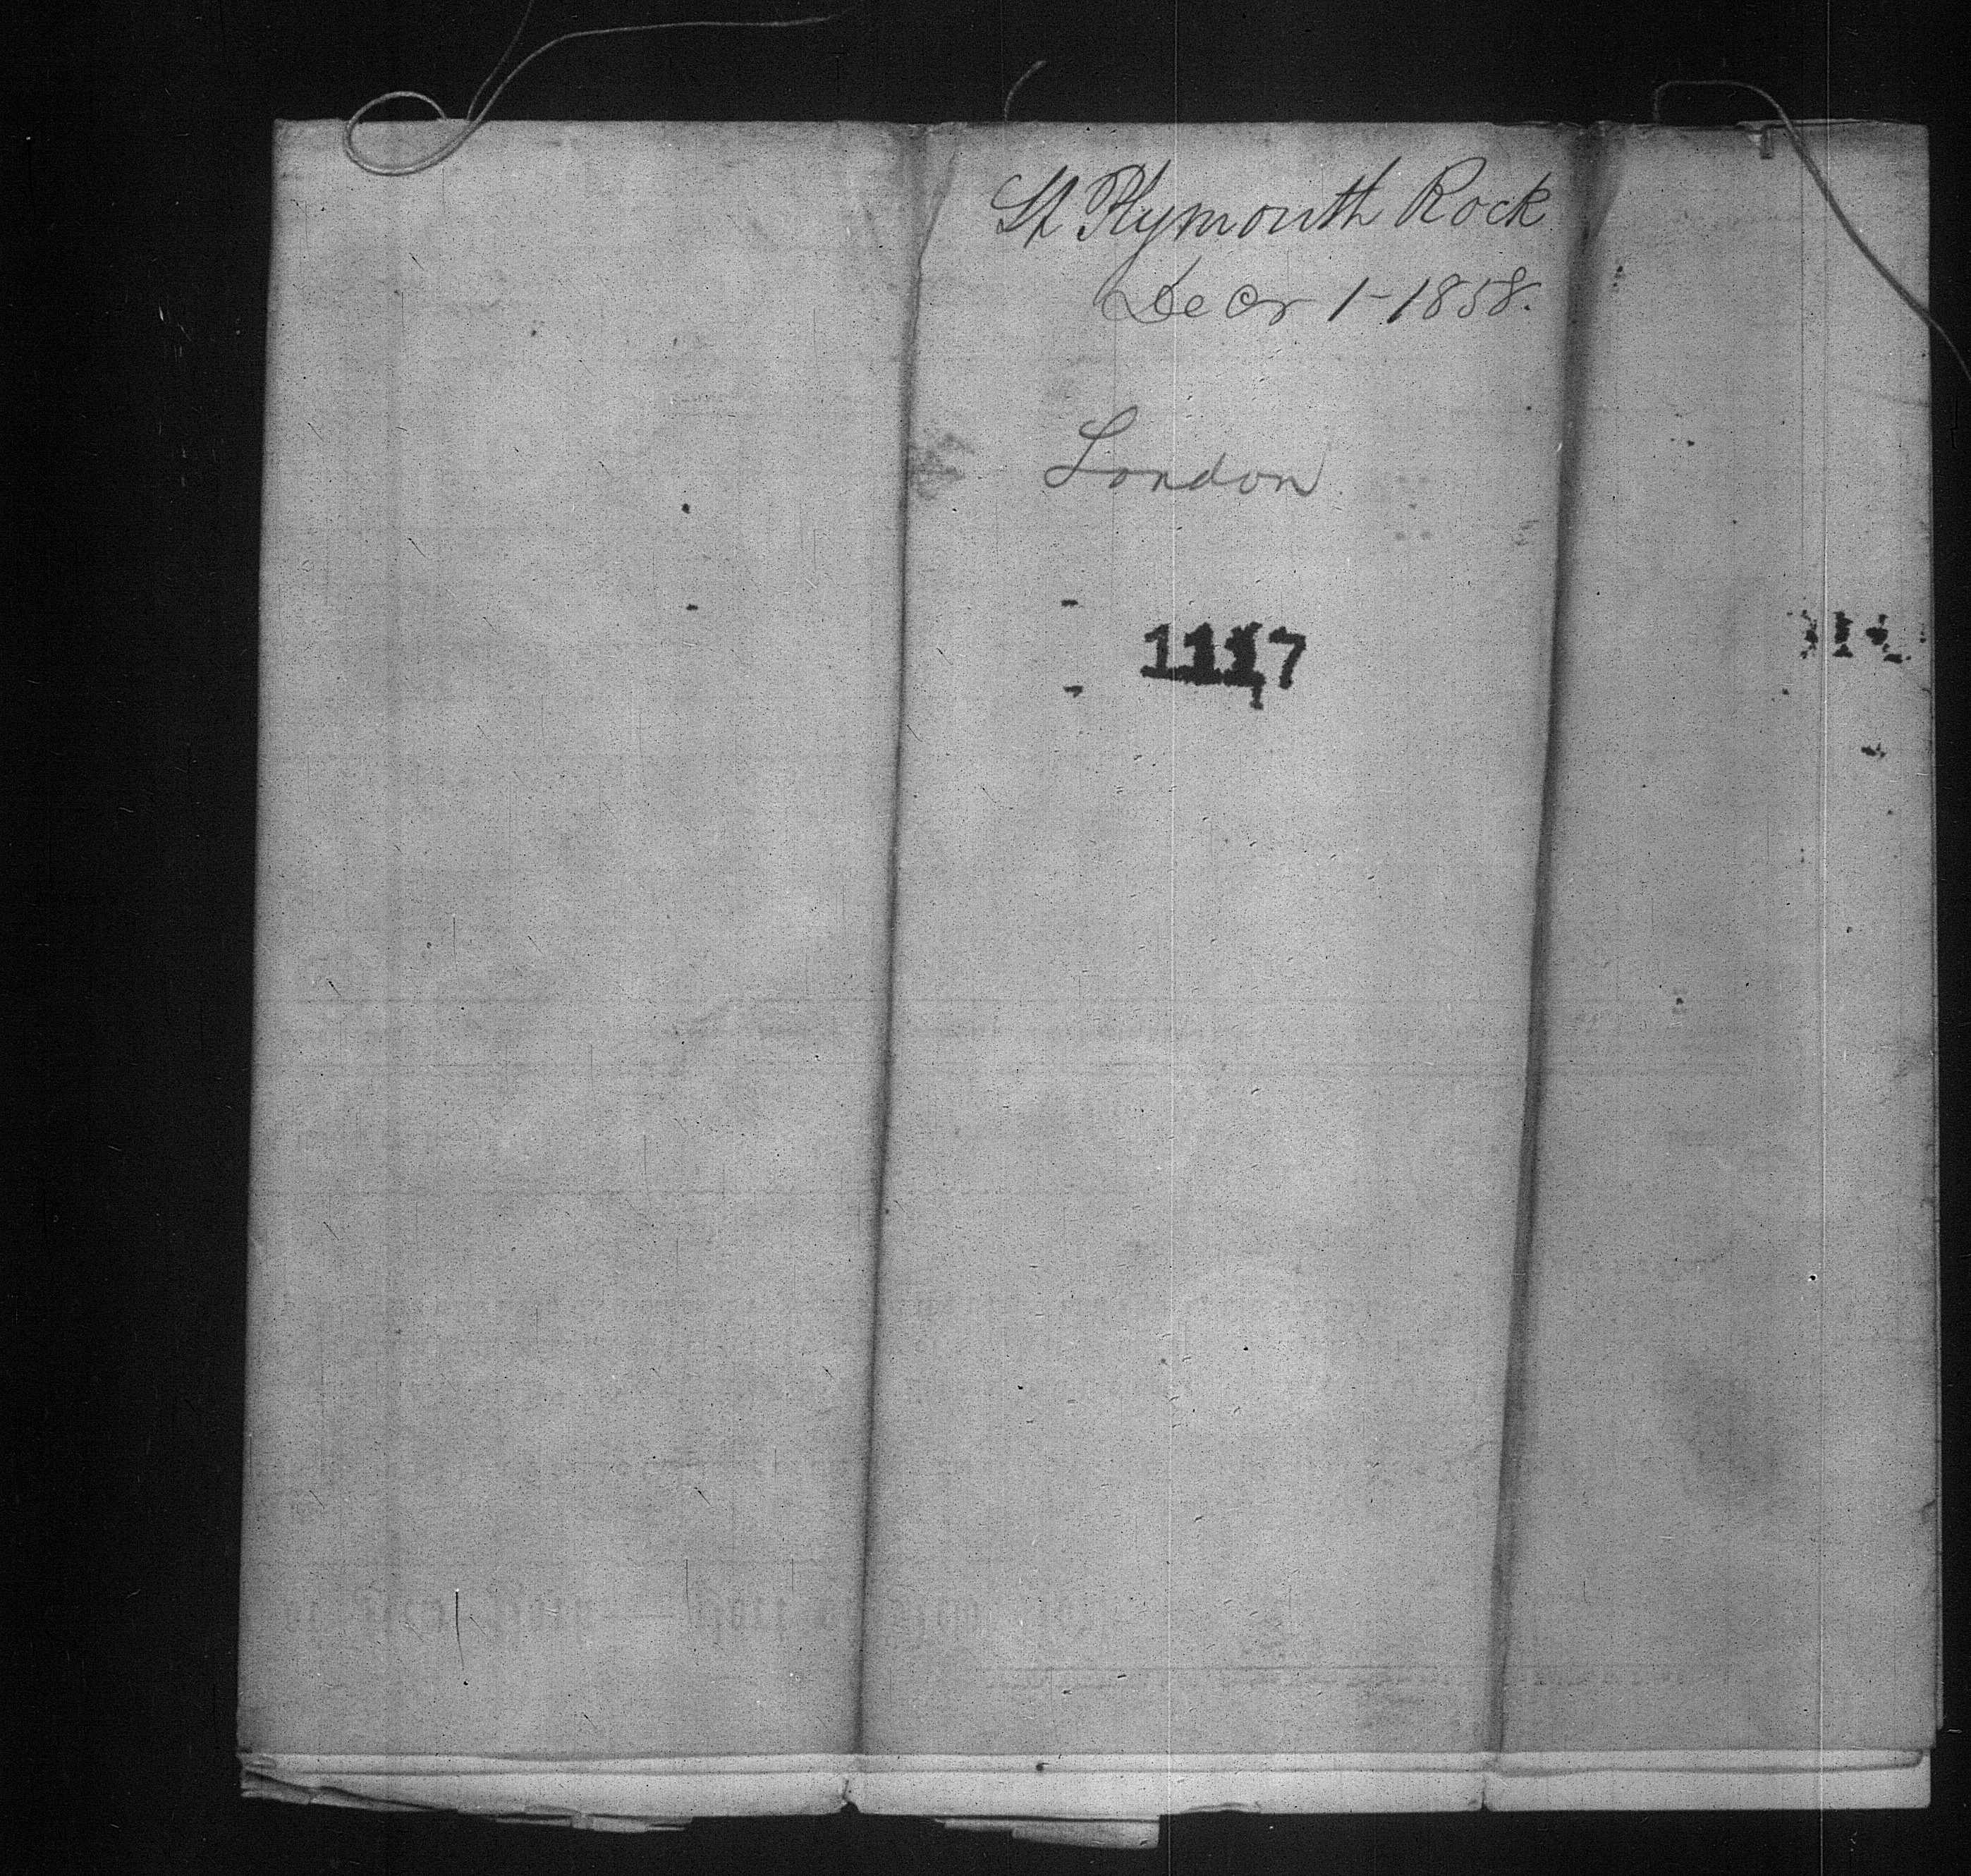 St Plymouth Rock
Decr 1-1858.
London
1117